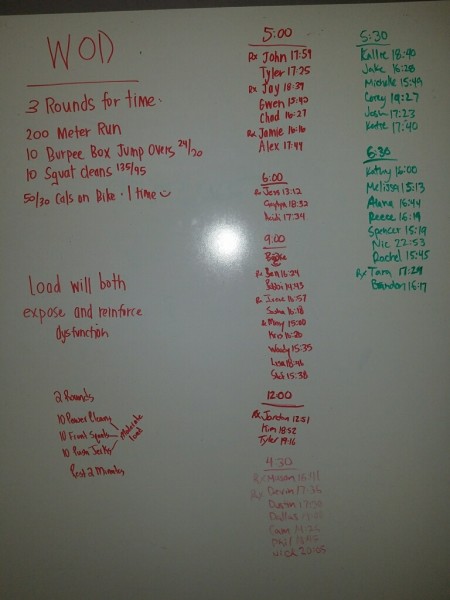 WOD
3 Rounds for time.
200 Meter Run
10 Burpee Box Jump Overs 24/20
10 Squat Cleans 135/95
50/30 Cals on Bike. 1 time
Load will both
expose and reinforce
dysfunction
2 Rounds
10 Power Cleans
10 Front Squats
10 Push Jerks
Moderate
load
Rest 2 Minutes
5:00
Rx John 17:59
Tyler 17:25
Rx Jay 18:39
Gwen 15:40
Chad 16:27
Rx Jamie 16:16
Alex 17:44
6:00
Rx Jess 13:12
18:32
Heidi 17:34
9:00
Rx Ben 16:24
Bobbi 14:43
Rx 16:57
Sasha 16:18
15:00
Kris 16:20
Woody 15:35
Lisa
15:38
12:00
Rx Jordan 12:51
Kim 18:52
Tyler 19:16
4:30
Rx Mason
Rx Devin 17:36
Dustin 17:30
Dallas
20:05
5:30
Kallie 18:40
Jake 16:28
Michelle 15:49
Corey 19:27
Josh 17:23
Katie 17:40
6:30
Kathy 16:00
Melissa 15:13
Alana 16:44
Reece 16:19
Spencer 15:19
Nic 22:53
Rachel 15:45
Rx Tara 17:29
Brandon 16:17